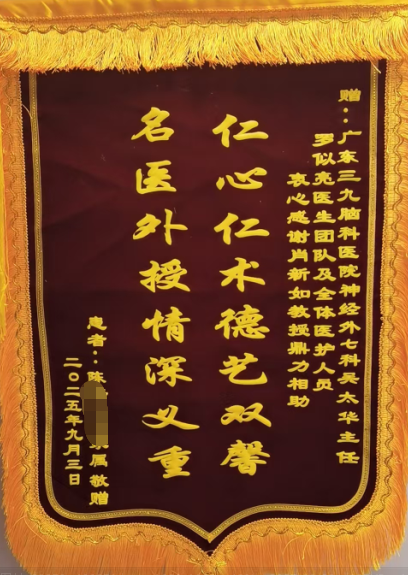 赠：广东三九脑科医院神经外七科吴太华主任
罗似亮医生团队及全体医护人员
衷心感谢肖新如教授鼎力相助
仁心仁术德艺双馨
名医外授情深义重
患者：陈 属敬赠
二〇二五年九月三日